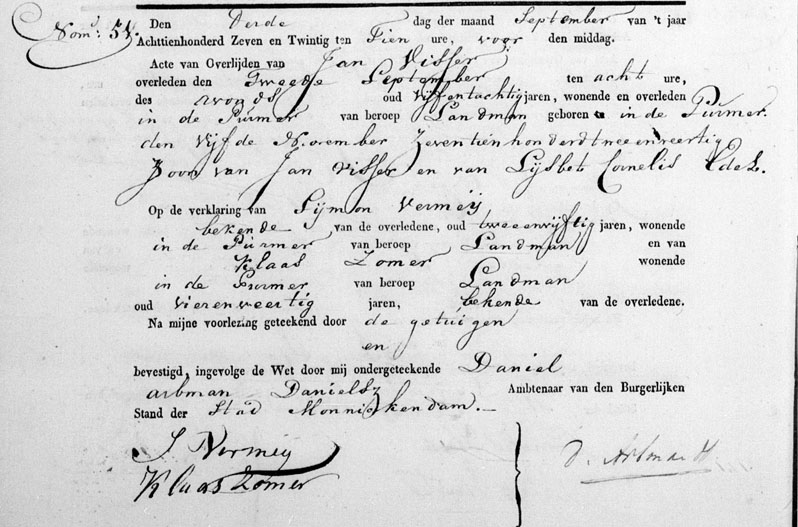 Nom: 51.
Den Derde dag der maand September van 't jaar
Achttienhonderd Zeven en Twintig ten Tien ure, voor den middag.
Acte van Overlijden van Jan Visser
overleden den Tweede September ten acht ure,
des avonds oud Vijfentachtig jaren, wonende en overleden
in de Purmer van beroep Landman geboren in de Purmer.
den Vijfde November Zeventienhonderdtweenveertig
Zoon van Jan Visser en van Lijsbet Cornelis
Op de verklaring van Sijmon Vermeij
bekende van de overledene, oud tweeenvijftig jaren, wonende
in de Purmer van beroep Landman en van
Klaas Zomer wonende
in de Purmer van beroep Landman
oud Vierenveertig jaren, bekende van de overledene.
Na mijne voorlezing geteekend door de getuigen
en
bevestigd, ingevolge de Wet door mij ondergeteekende Daniel
arbman Danielsz Ambtenaar van den Burgerlijken
Stand der Stad Monnickendam.
S Vermeij
Klaas Zomer
D. Arbman